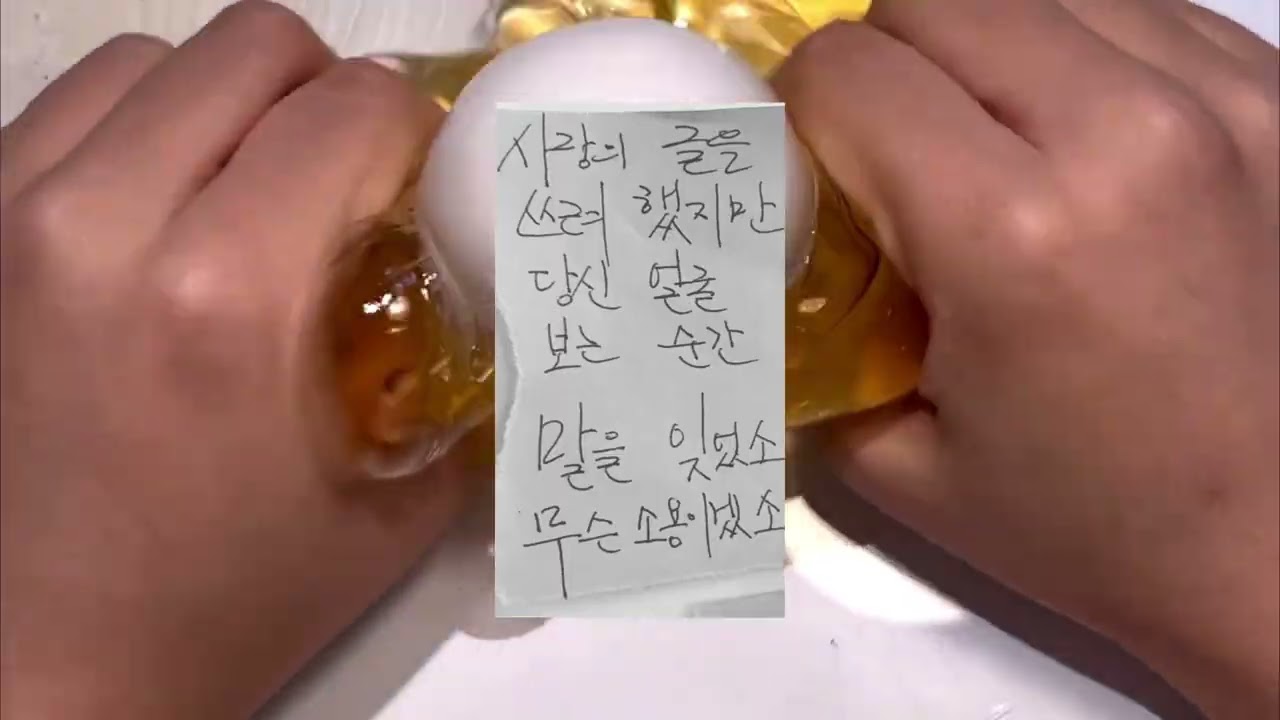 사랑의 글을
쓰려 했지만
당신 얼굴
보는 순간
말을 잊었소
무슨 소용이겠소